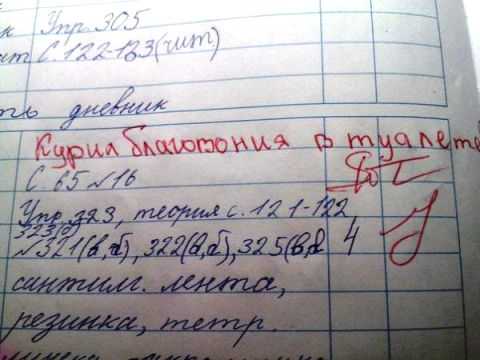 к Упр. 305
ит С. 122-123 (чит)
ть дневник
Курил благовония в туалете
С. 65 №16
Упр. 323, теория с. 121-122,
323(а)
№321(в,б), 322(а,б), 325(а,б 4
сантим. лента,
резинка, тетр.